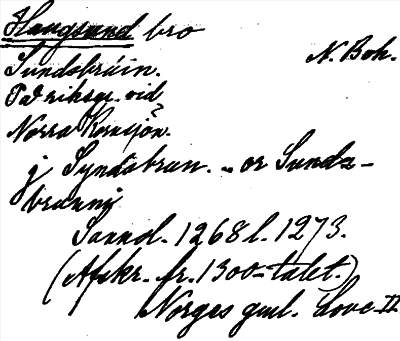 Haugsund bro
N. Boh.
Sundabrúin.
På riksgr. vid
Norra Kornsjön.
j Syndabrun. - or Sunda-
brunni
Sannol. 1268 l. 1273.
(Afskr. fr. 1300-talet.)
Norges gml. Love II